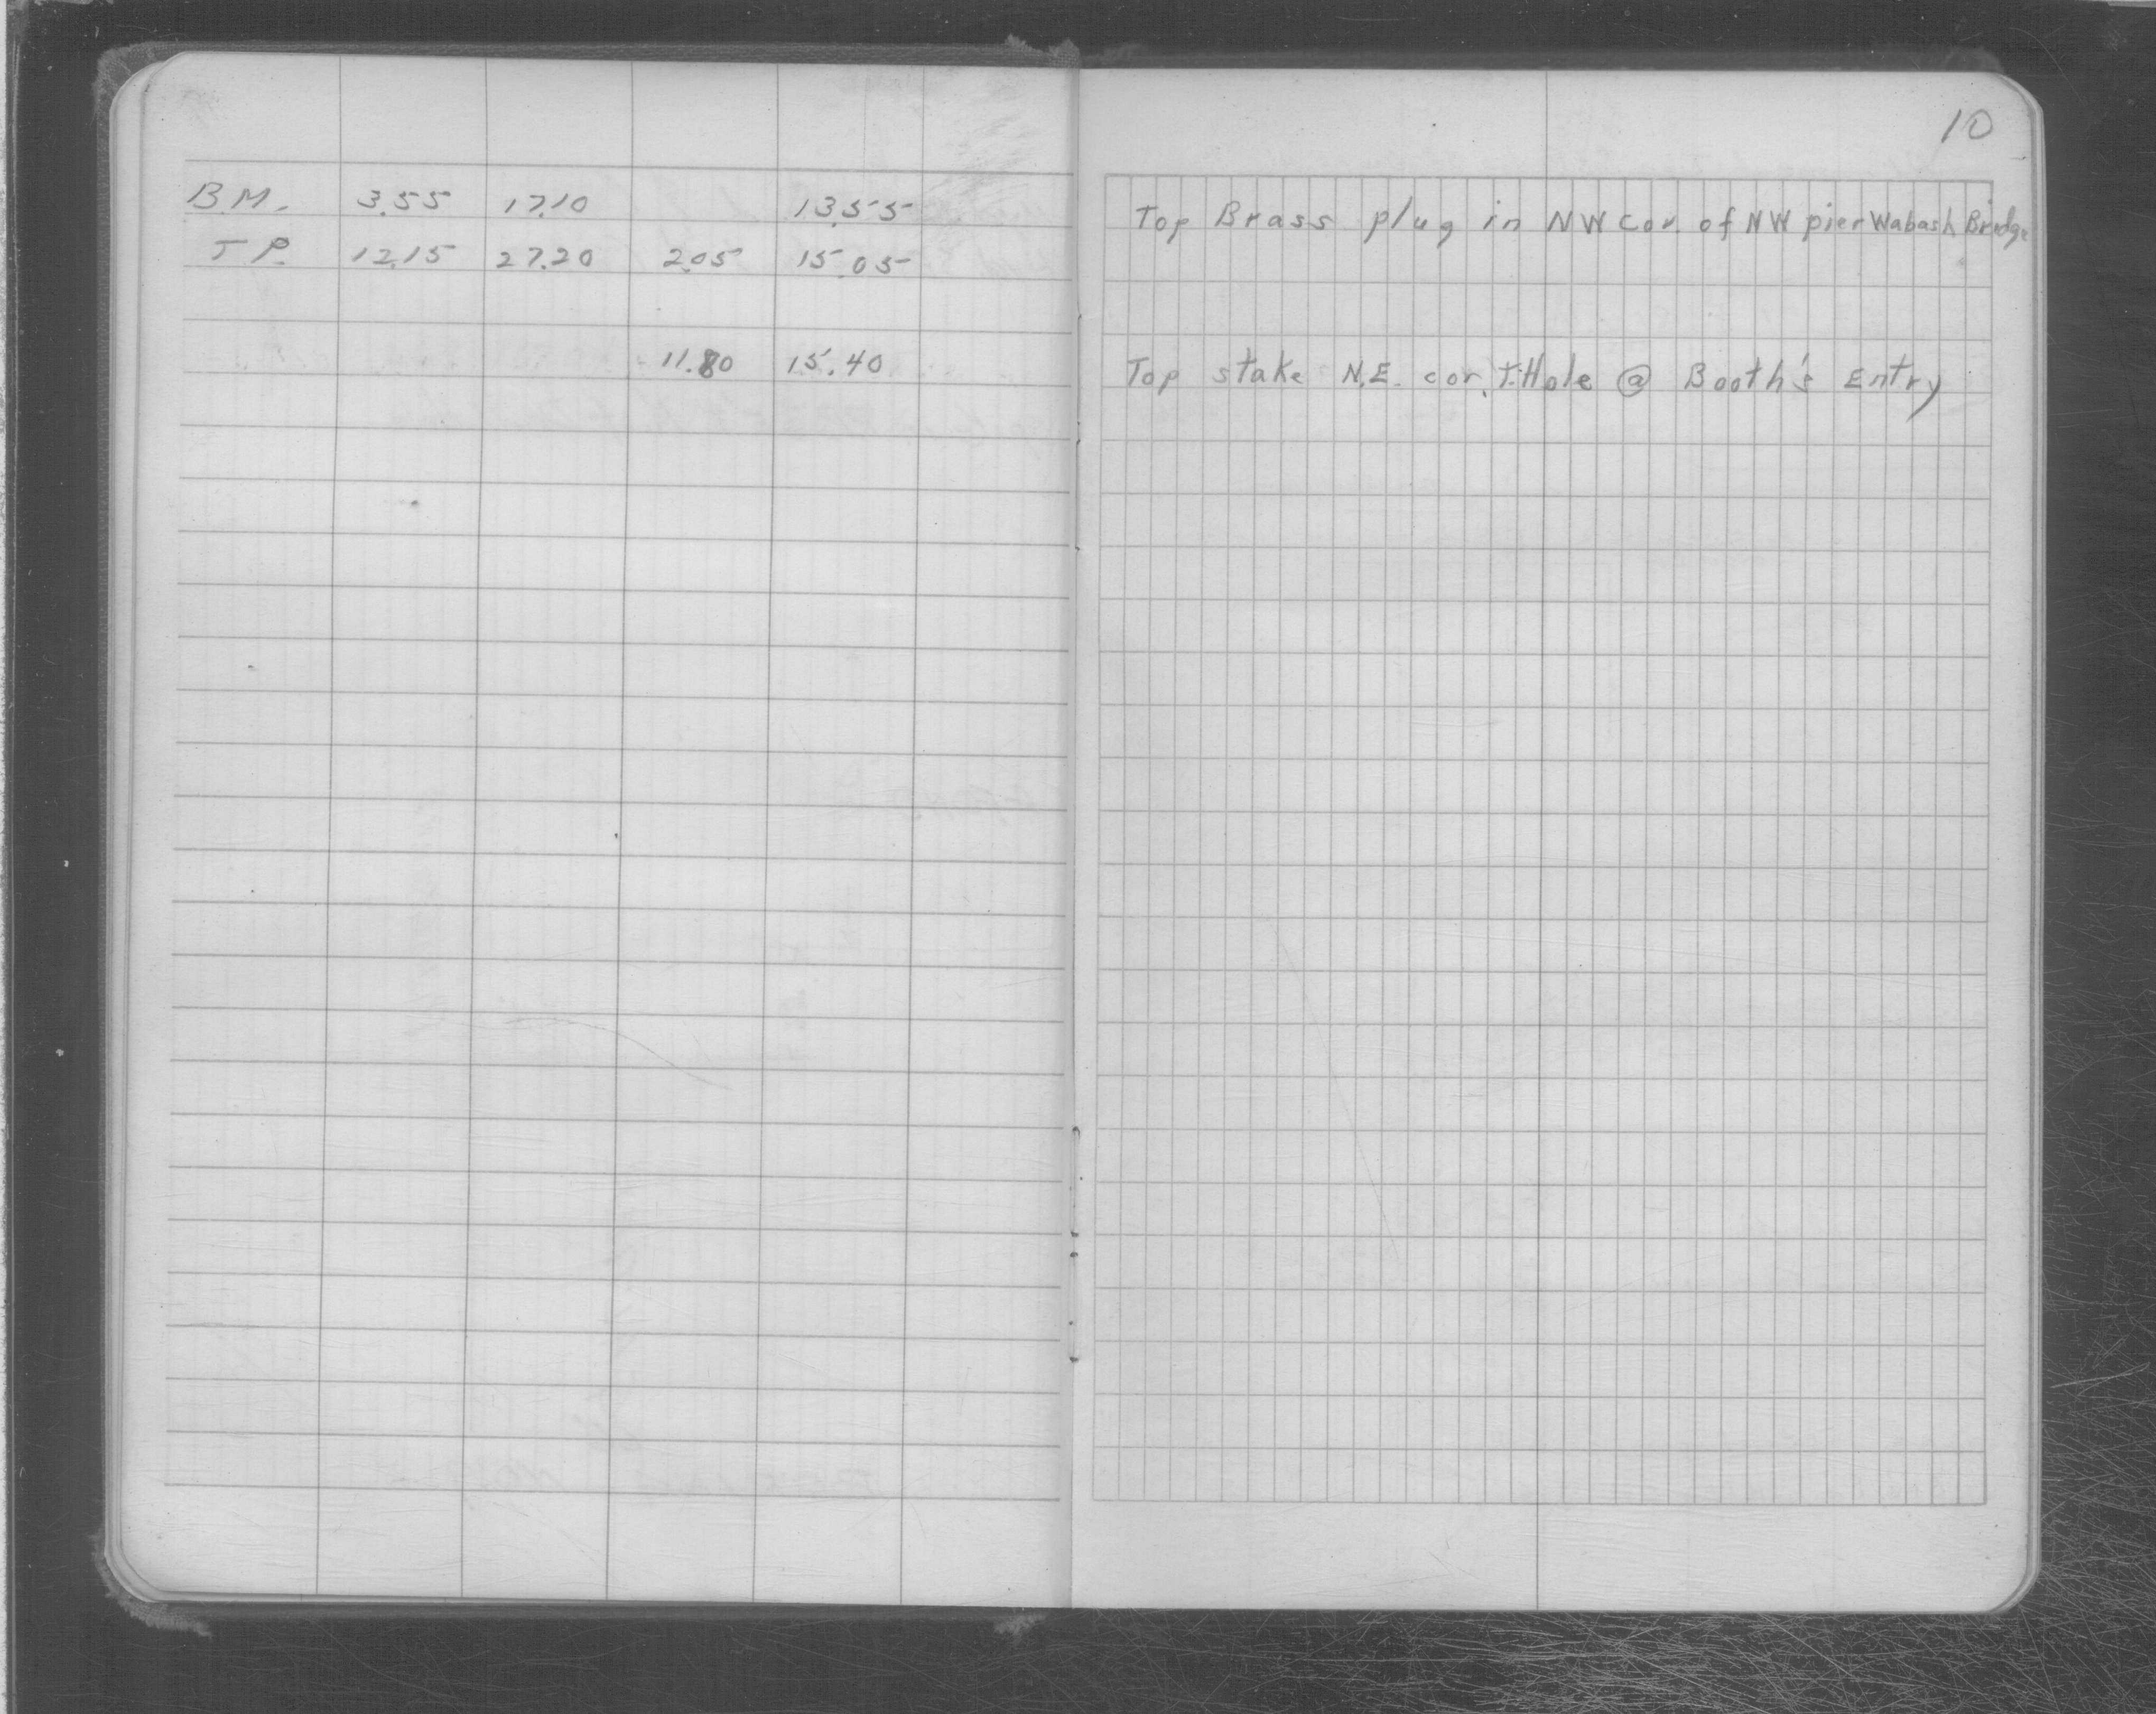 10
B.M. 3.55 17.10 13.55 Top Brass plug in NW cor. of NW pier Wabash Bridge
T.P. 12.15 27.20 2.05 15.05
11.80 15.40 Top stake N.E. cor. T.Hole @ Booth's Entry